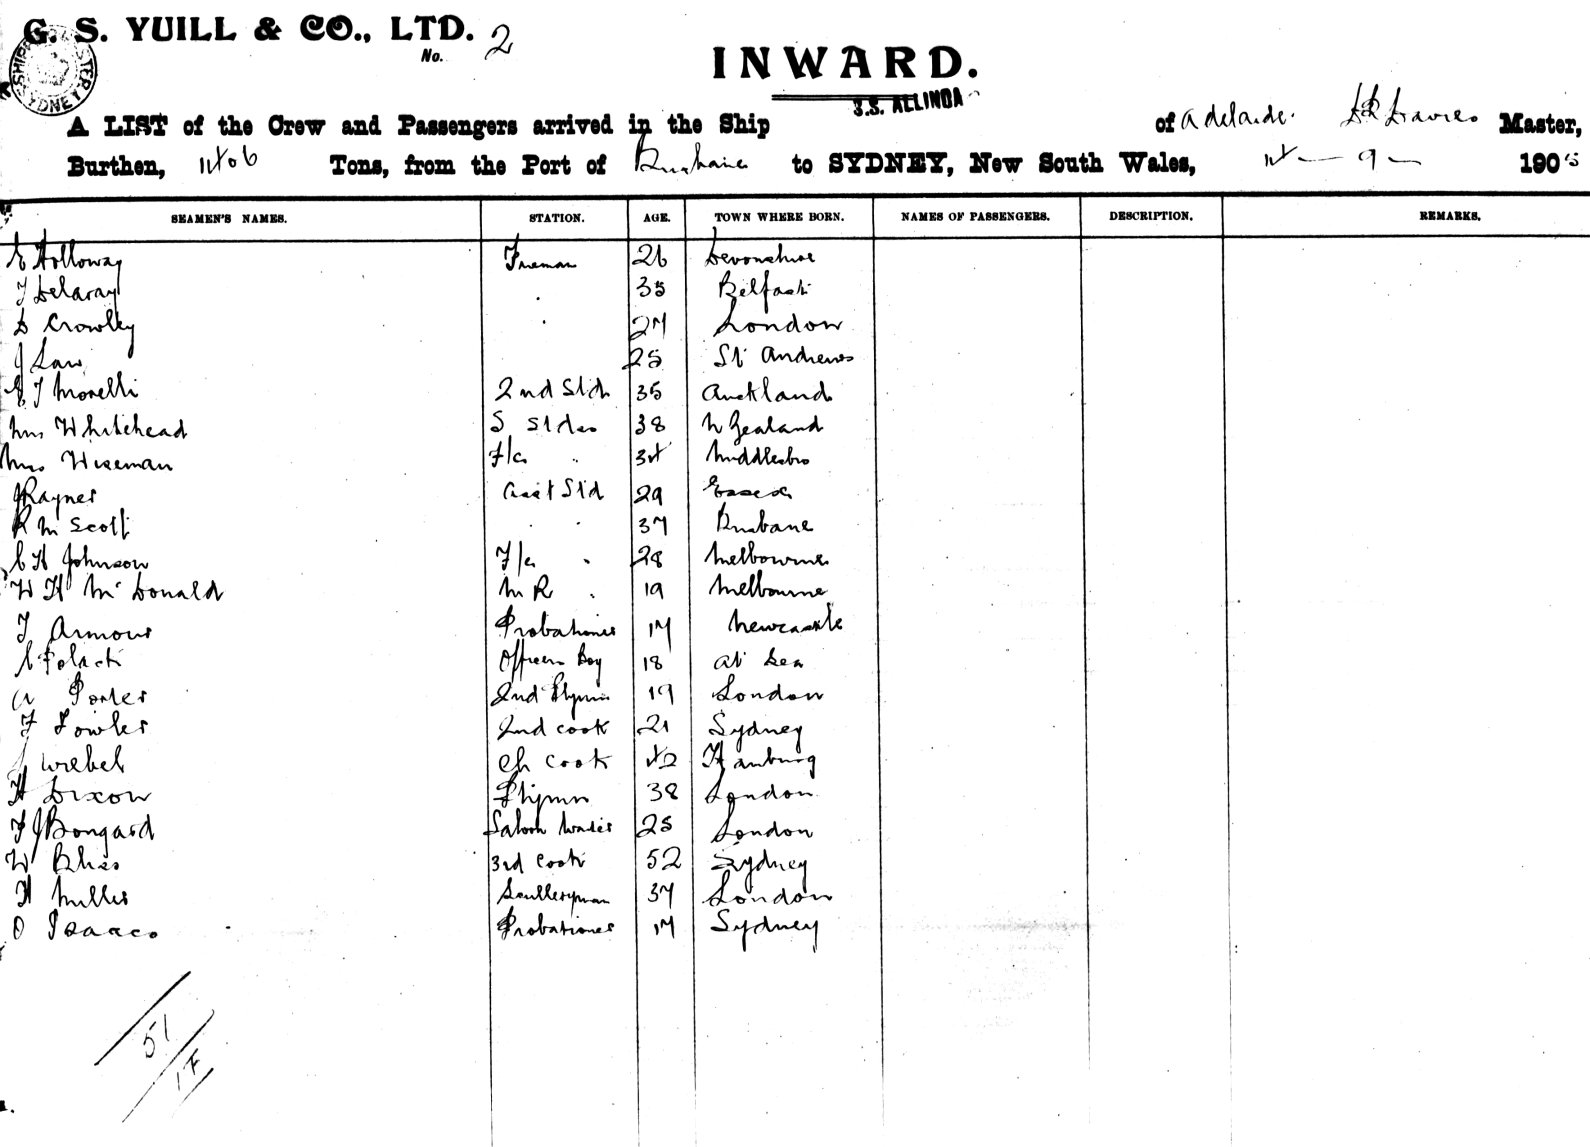 G. S. YUILL & CO., LTD.
No. 2
INWARD.
S.S. ALLINGA
A LIST of the Crew and Passengers arrived in the Ship of Adelaide. Davies Master,
Burthen, Tons, from the Port of Brisbane to SYDNEY, New South Wales, 4 — 9 — 1905
SEAMEN'S NAMES. STATION. AGE. TOWN WHERE BORN. NAMES OF PASSENGERS. DESCRIPTION. REMARKS.
E Holloway Fireman 26 Devonshire
J Delaray 35 Belfast
D Crowley 27 London
J Law 25 St Andrews
E J Morelli 2nd Std 35 Auckland
Mrs Whitehead S Stdss 38 N Zealand
Mrs Wiseman F/c " 34 Middlesbro
J Rayner Asst Std 29 Essex
R M Scott " " 37 Brisbane
C H Johnson F/c " 28 Melbourne
W H McDonald M R " 19 Melbourne
J Armour Probationer 17 Newcastle
Polack Officers Boy 18 at Sea
A Porter 2nd 19 London
F Fowler 2nd cook 21 Sydney
J Wrebel Ch cook 42 Hamburg
H Dixon 38 London
F J Bongard Saloon Waiter 25 London
W Bliss 3rd cook 52 Sydney
H Miller Sculleryman 37 London
O Isaacs Probationer 17 Sydney
51
1F